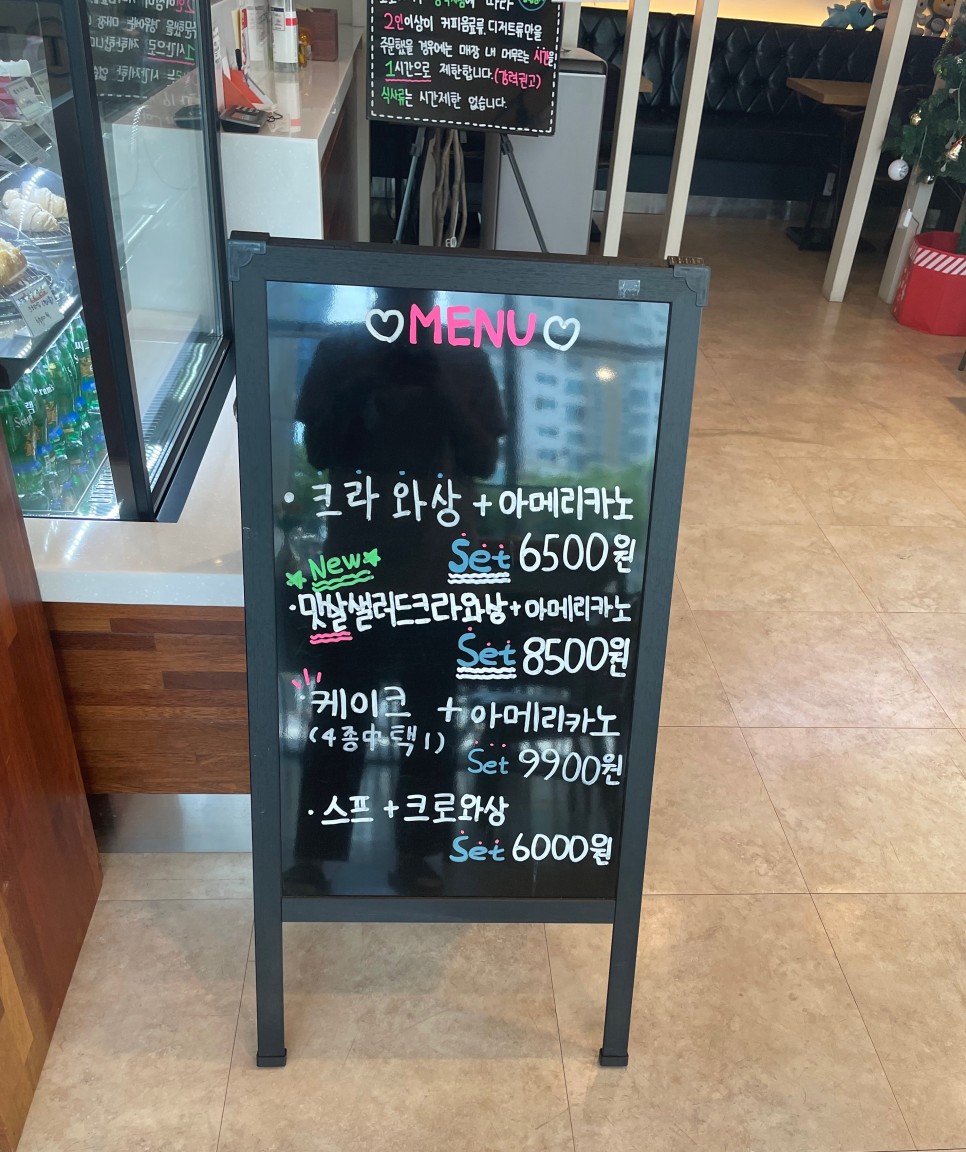 2인이상이 커피음료류, 디저트류만을
주문했을 경우에는 매장 내 머무르는 시간을
1시간으로 제한합니다.(강력권고)
식사류는 시간제한 없습니다.
♡MENU♡
· 크라 와상 + 아메리카노
Set 6500원
New
·맛살샐러드크라와상+아메리카노
Set 8500원
·케이크 + 아메리카노
(4종中택1)
Set 9900원
·스프 + 크로와상
Set 6000원